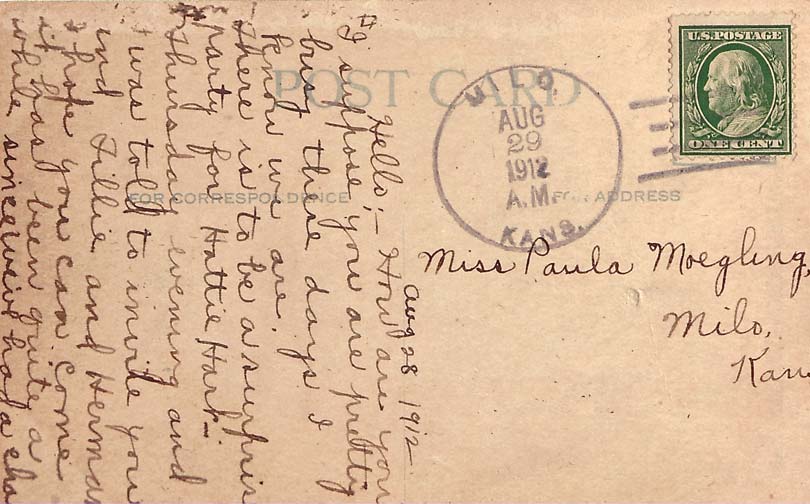 POST CARD
FOR CORRESPONDENCE
FOR ADDRESS
U.S. POSTAGE
ONE CENT
MILO,
AUG
29
1912
A.M.
KANS.
Miss Paula Moegling,
Milo,
Kan
Aug 28 1912
Hello;- How are you
I suppose you are pretty
busy these days I
know we are.
There is to be a surpris
party for Hattie Hark-
Thursday evening and
I was told to invite you
and Tillie and Herman
I hope you can come
it has been quite a
while since we've had a cha